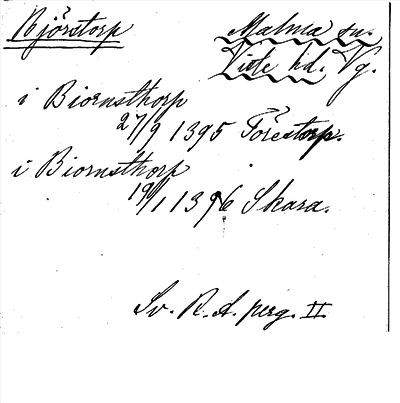 Björstorp Malma sn.
Viste hd. Vg.
i Biornsthorp
27/9 1395 Torestorp.
i Biornsthorp
19/1 1396 Skara.
Sv. R. A. perg. II